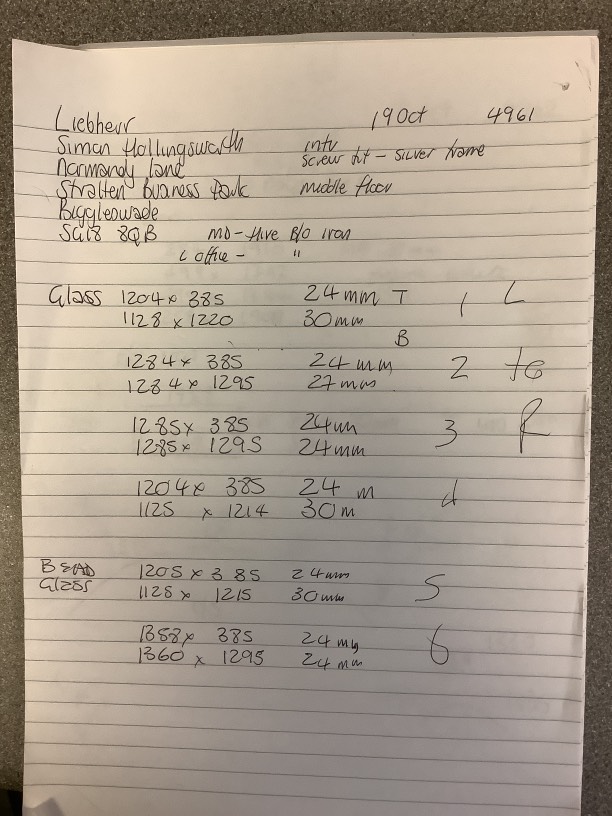 Liebherr 19 Oct 4961
Simon Hollingsworth intu
Normandy lane screw fit - silver frame
Stratten business Park middle floor
Biggleswade
SG18 8QB MD - Hive B/O iron
L office - "
Glass 1204 x 385 24mm T 1 L
1128 x 1220 30mm
B
1284 x 385 24mm 2 to
1284 x 1295 27mm
1285 x 385 24mm 3 R
1285 x 1295 24mm
1204 x 385 24 m 4
1125 x 1214 30m
BEAD 1205 x 385 24mm 5
Glass 1128 x 1215 30mm
1358 x 385 24mm 6
1360 x 1295 24mm